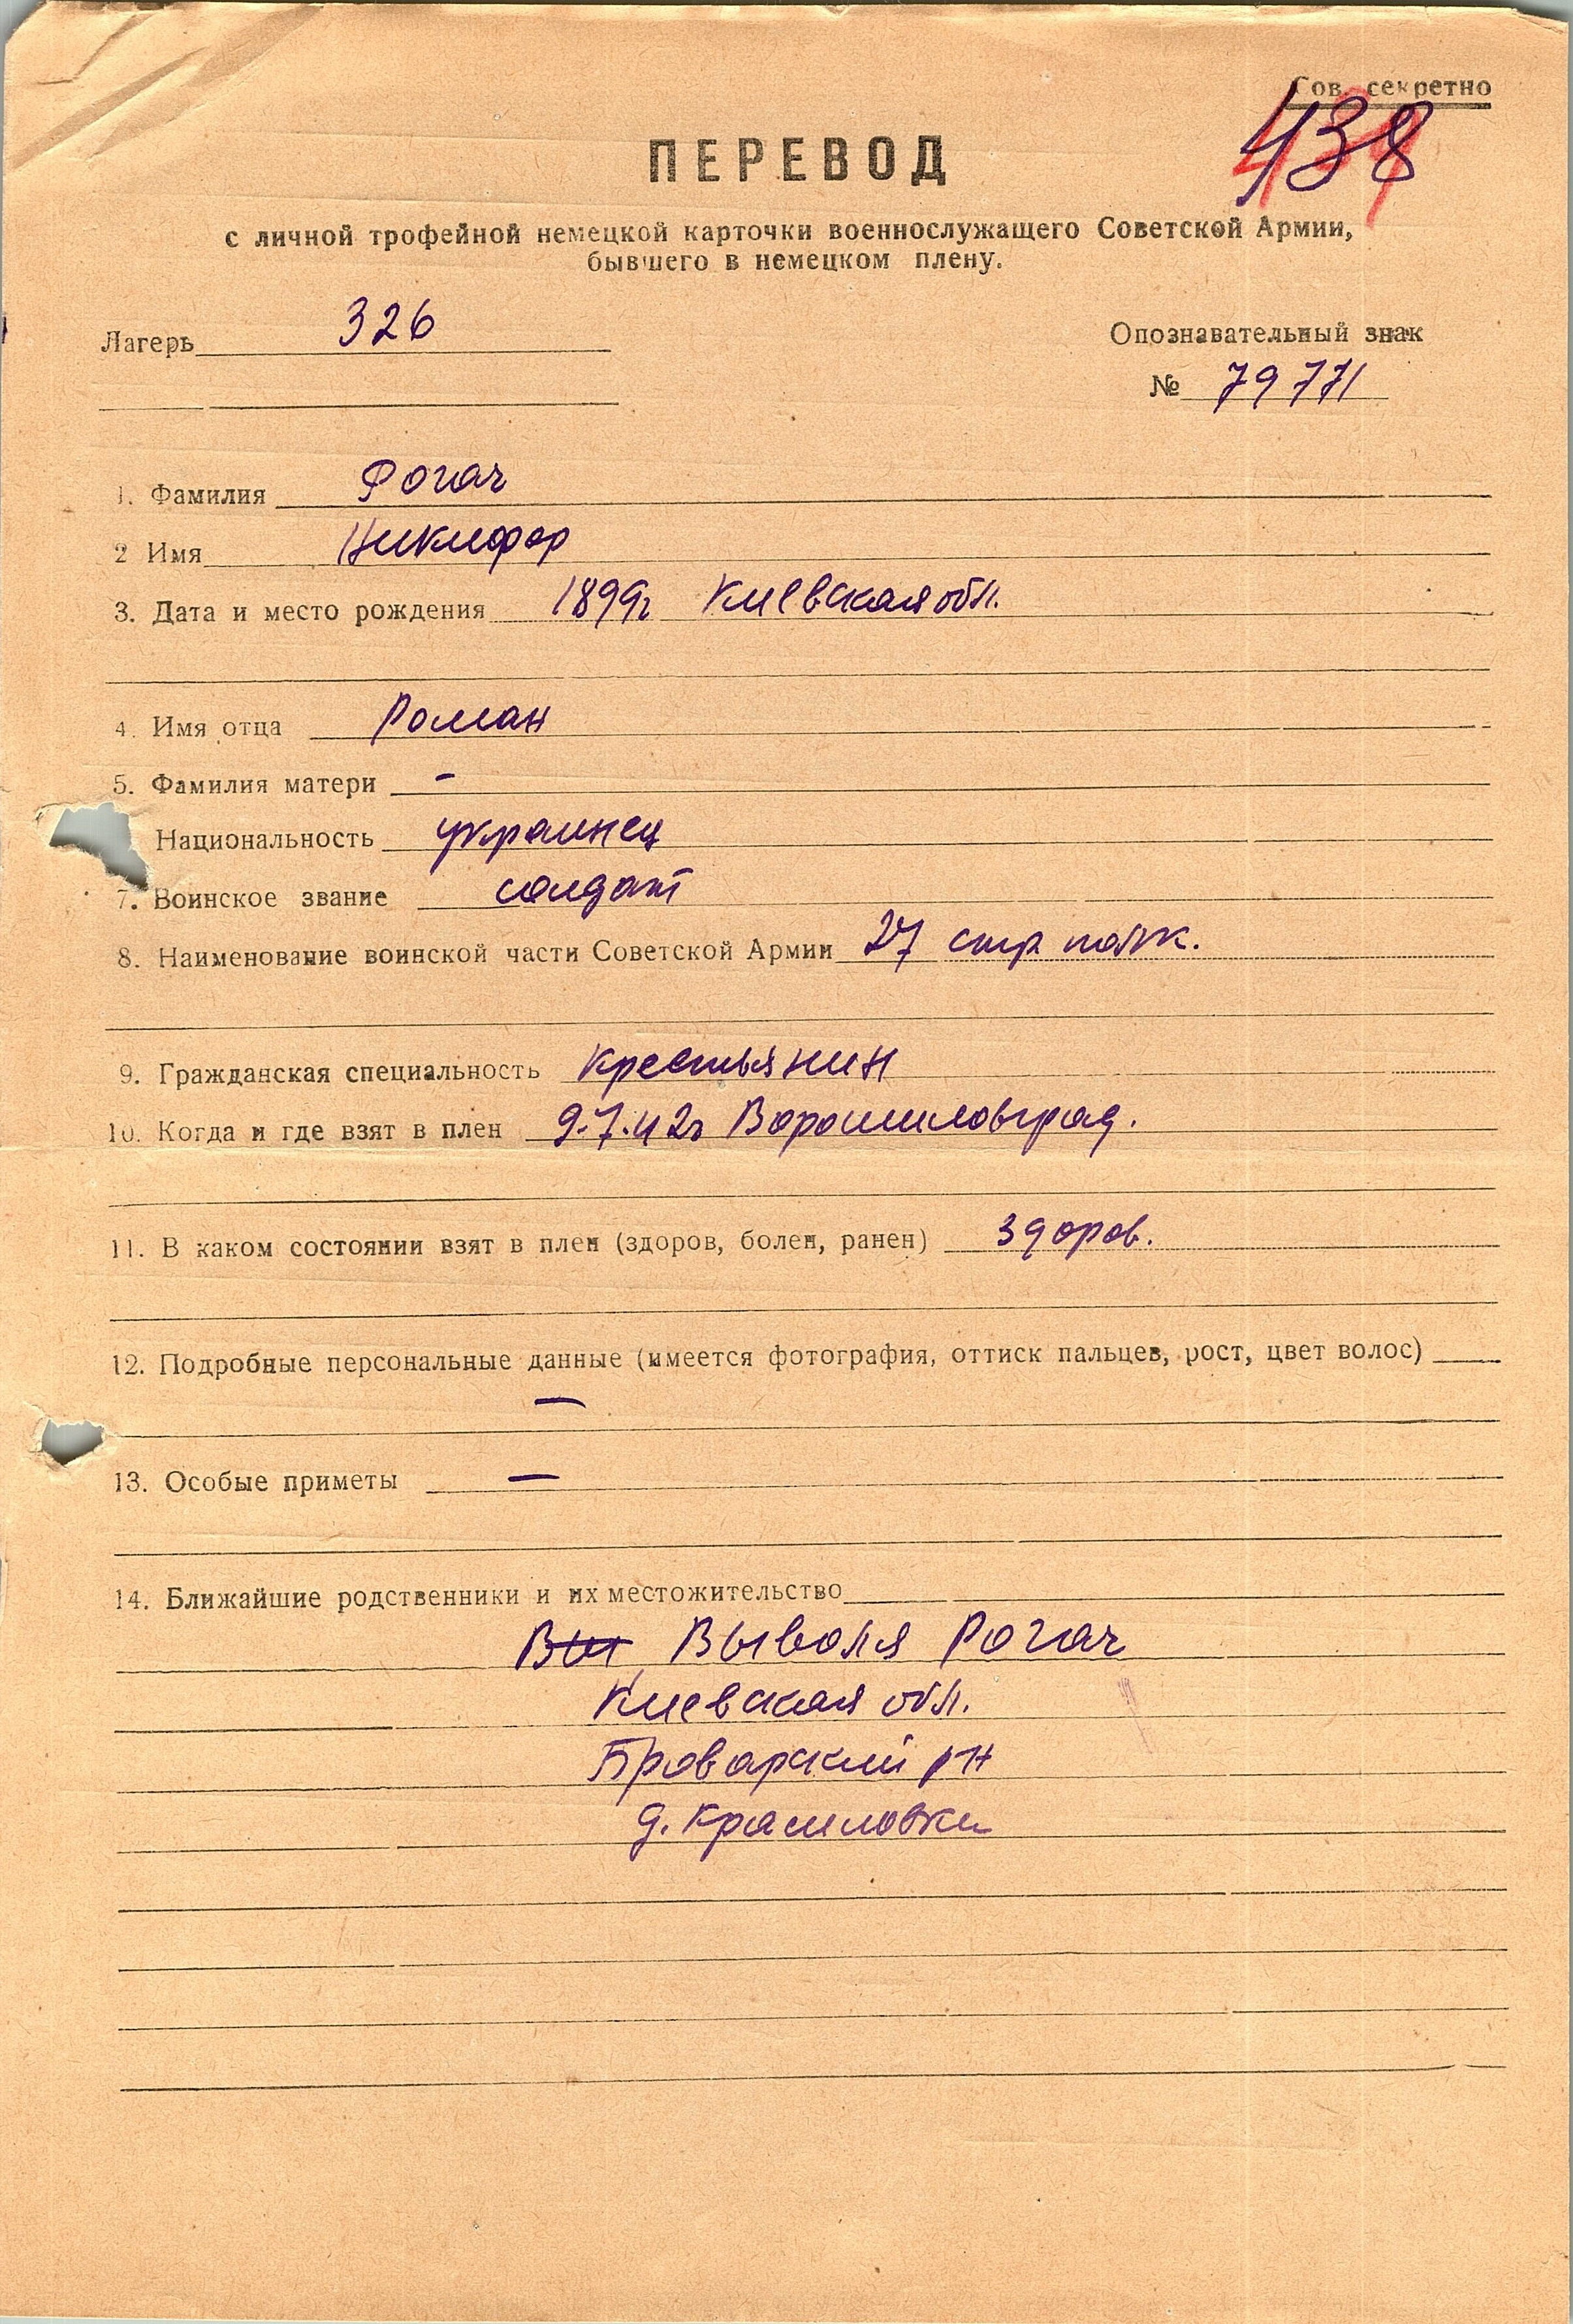 Сов. секретно
438
ПЕРЕВОД
с личной трофейной немецкой карточки военнослужащего Советской Армии,
бывшего в немецком плену.
Лагерь 326
Опознавательный знак
№ 79771
1. Фамилия Рогач
2 Имя Никифор
3. Дата и место рождения 1899г Киевская обл.
4. Имя отца Роман
5. Фамилия матери –
Национальность украинец
7. Воинское звание солдат
8. Наименование воинской части Советской Армии 27 стр полк.
9. Гражданская специальность крестьянин
10. Когда и где взят в плен 9.7.42г Ворошиловград.
11. В каком состоянии взят в плен (здоров, болен, ранен) здоров.
12. Подробные персональные данные (имеется фотография, оттиск пальцев, рост, цвет волос)
—
13. Особые приметы —
14. Ближайшие родственники и их местожительство
Выволя Рогач
Киевская обл.
Броварский рн
д. Красиловки